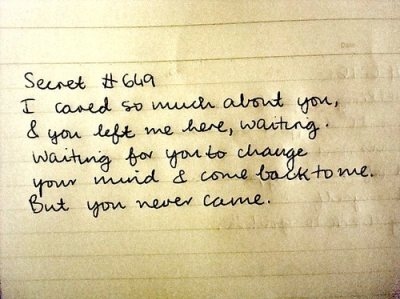 Secret #649
I cared so much about you,
& you left me here, waiting.
Waiting for you to change
your mind & come back to me.
But you never came.